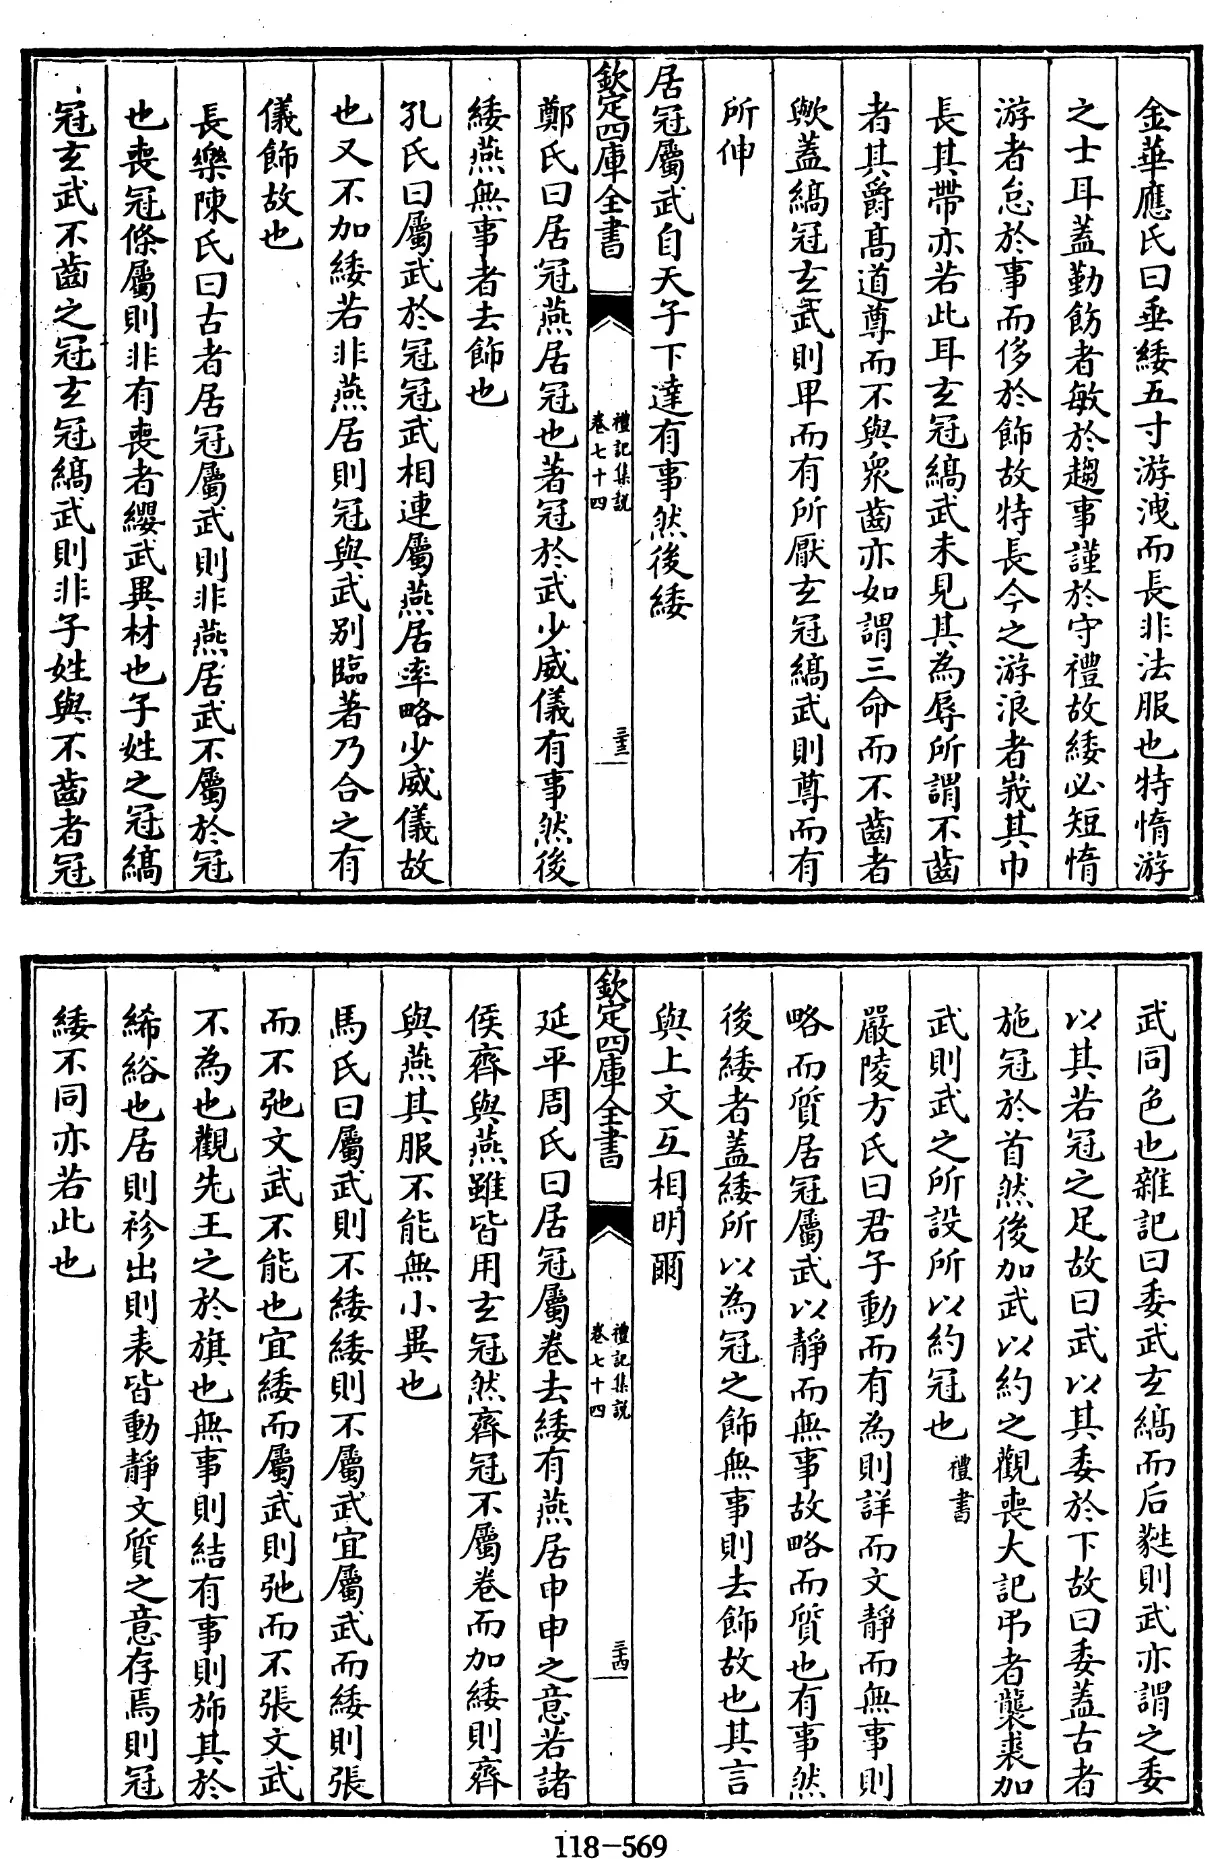 金華應氏曰垂緌五寸游洩而長非法服也特惰游
之士耳蓋勤飭者敏於趨事謹於守禮故緌必短惰
游者怠於事而侈於飾故特長今之游浪者峩其巾
長其帶亦若此耳玄冠縞武未見其為辱所謂不齒
者其爵髙道尊而不與衆齒亦如謂三命而不齒者
歟蓋縞冠玄武則卑而有所厭玄冠縞武則尊而有
所伸
居冠屬武自天子下達有事然後緌
欽定四庫全書
禮記集説
卷七十四
三十三
鄭氏曰居冠燕居冠也著冠於武少威儀有事然後
緌燕無事者去飾也
孔氏曰屬武於冠冠武相連屬燕居率略少威儀故
也又不加緌若非燕居則冠與武别臨著乃合之有
儀飾故也
長樂陳氏曰古者居冠屬武則非燕居武不屬於冠
也喪冠條屬則非有喪者纓武異材也子姓之冠縞
冠玄武不齒之冠玄冠縞武則非子姓與不齒者冠
武同色也雜記曰委武玄縞而后蕤則武亦謂之委
以其若冠之足故曰武以其委於下故曰委蓋古者
施冠於首然後加武以約之觀喪大記弔者襲裘加
武則武之所設所以約冠也禮書
嚴陵方氏曰君子動而有為則詳而文靜而無事則
略而質居冠屬武以靜而無事故略而質也有事然
後緌者蓋緌所以為冠之飾無事則去飾故也其言
與上文互相明爾
欽定四庫全書
禮記集説
卷七十四
三十四
延平周氏曰居冠屬卷去緌有燕居申申之意若諸
侯齊與燕雖皆用玄冠然齊冠不屬卷而加緌則齊
與燕其服不能無小異也
馬氏曰屬武則不緌緌則不屬武宜屬武而緌則張
而不弛文武不能也宜緌而屬武則弛而不張文武
不為也觀先王之於旗也無事則結有事則斾其於
絺綌也居則袗出則表皆動靜文質之意存焉則冠
緌不同亦若此也
118-569